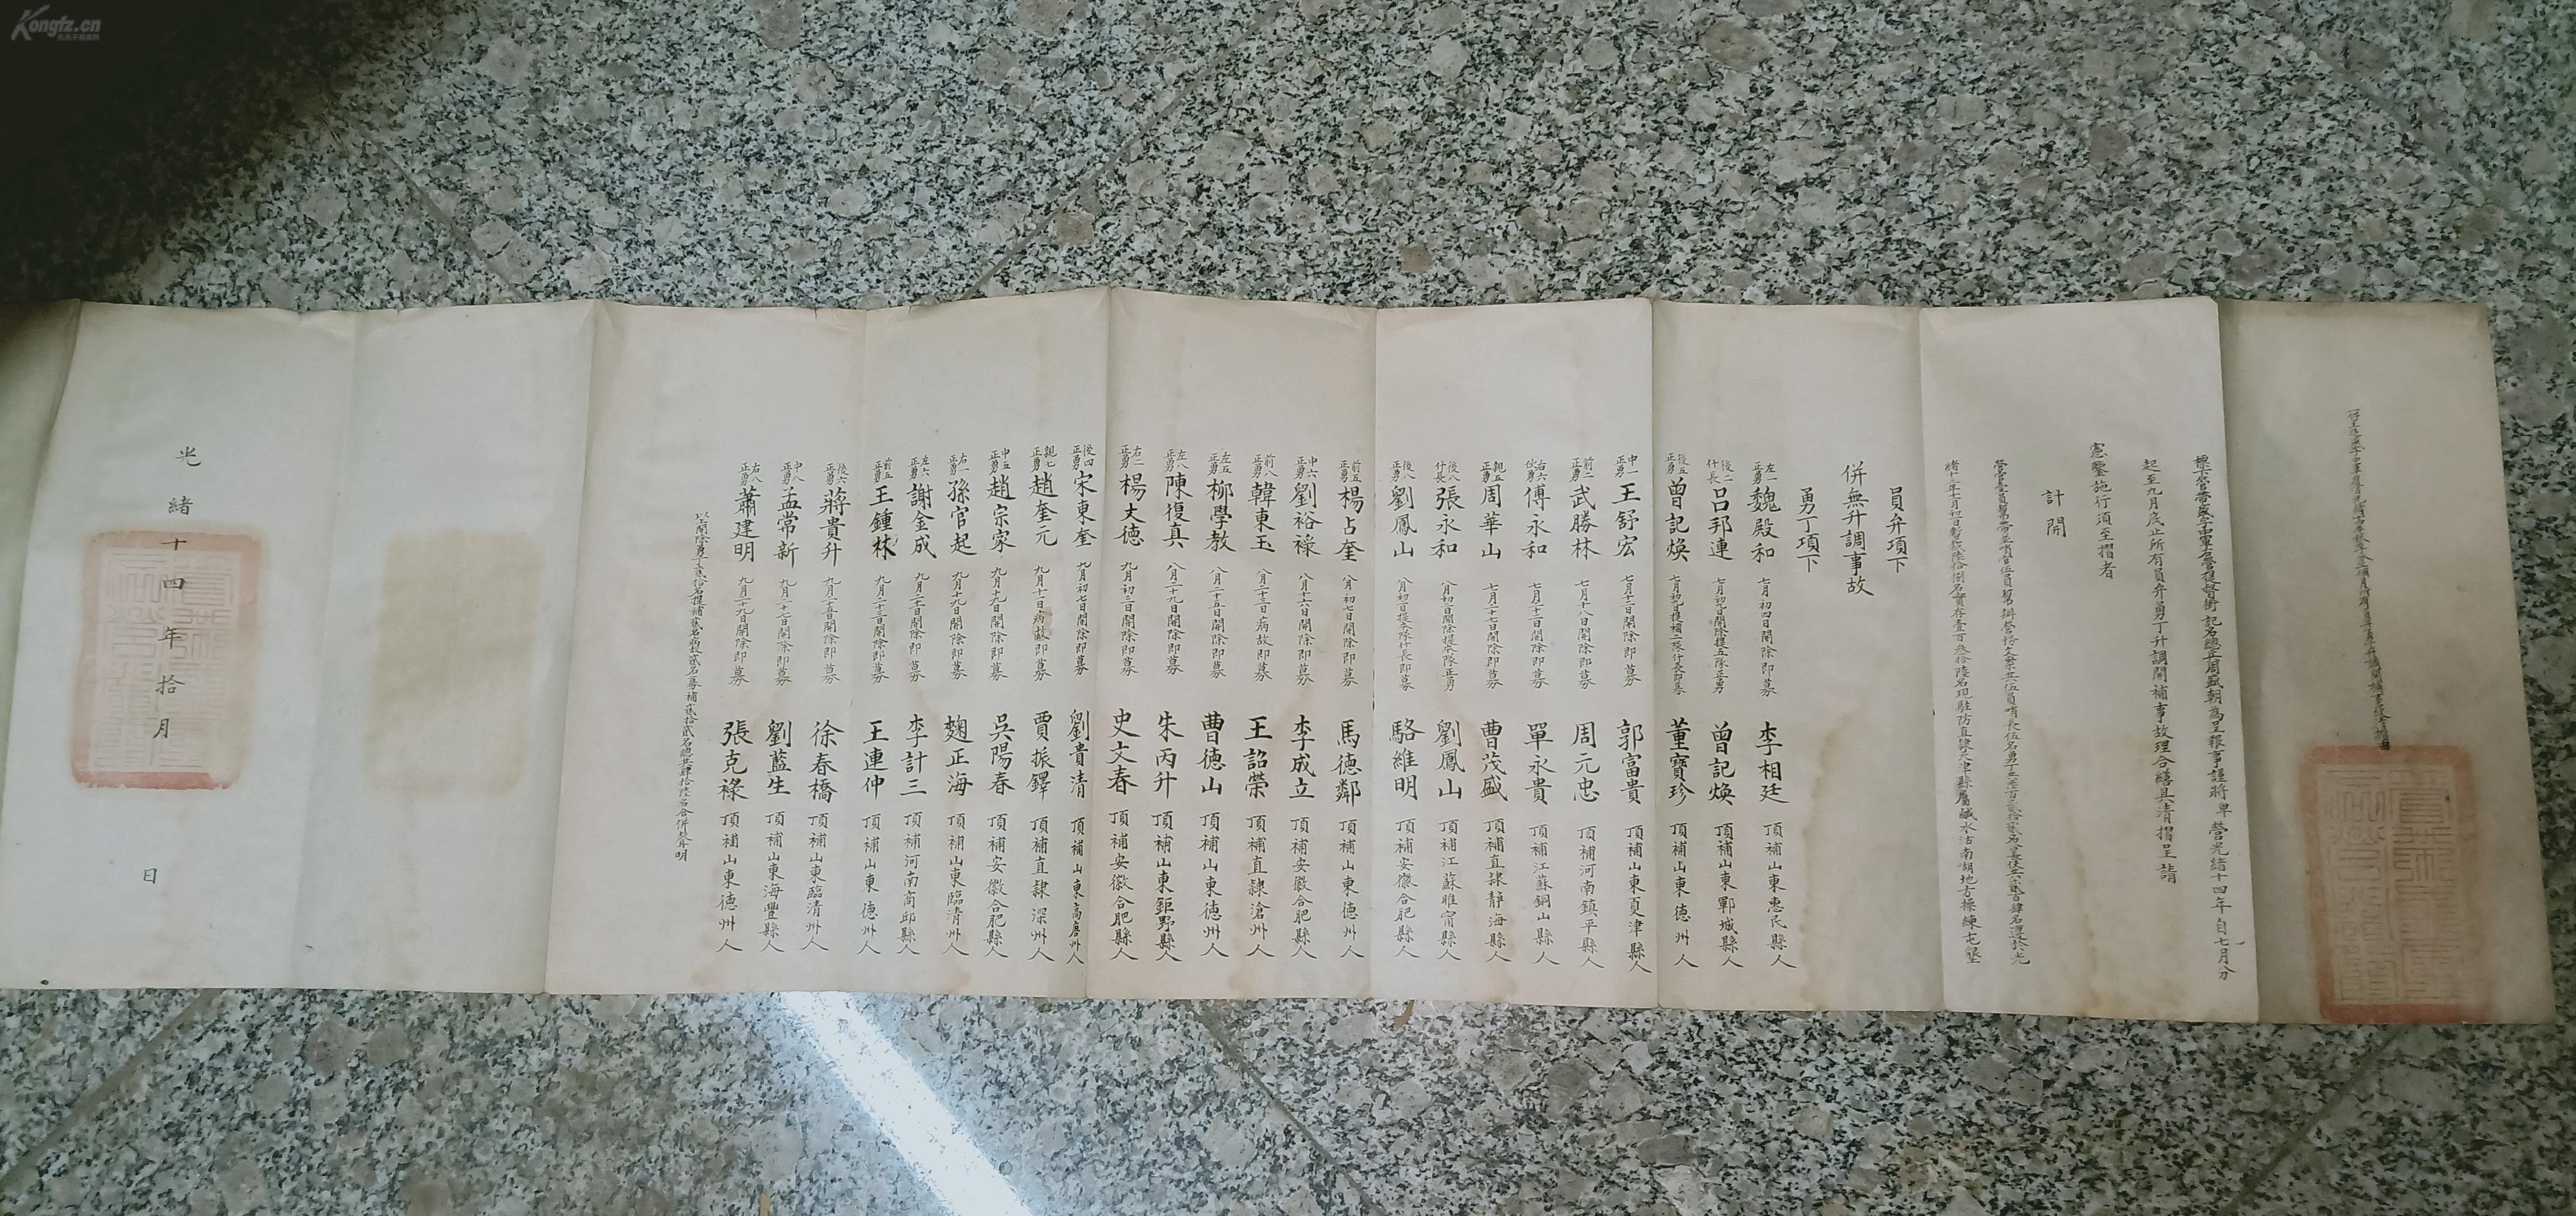 標下管帶盛字中軍右營提督銜記名總兵周盛朝為呈報事謹將卑營光緒十四年自七月分
起至九月底止所有員弁勇丁升調開補事故理合繕具清摺呈請
憲鑒施行須至摺者
計開
緒十年七月初日暫裁陸拾捌名實存壹百叁拾陸名現駐防直隸天津縣屬鹹水沽南胡地方操練屯墾
員弁項下
併無升調事故
勇丁項下
左一正勇 魏殿和 七月初四日開除即募 李相廷 頂補山東惠民縣人
後二什長 呂邦連 七月初九日開除提五隊正勇 曾記煥 頂補山東鄆城縣人
後五正勇 曾記煥 七月初九日提補二隊什長即募 董寶珍 頂補山東德州人
中一正勇 王舒宏 七月十二日開除即募 郭富貴 頂補山東夏津縣人
前二正勇 武勝林 七月十八日開除即募 周元忠 頂補河南鎮平縣人
右六伙勇 傅永和 七月二十一日開除即募 單永貴 頂補江蘇銅山縣人
親五正勇 周華山 七月二十七日開除即募 曹茂盛 頂補直隸靜海縣人
後八什長 張永和 八月初二日開除提本隊正勇 劉鳳山 頂補江蘇睢甯縣人
後八正勇 劉鳳山 八月初二日提本隊什長即募 駱維明 頂補安徽合肥縣人
前五正勇 楊占奎 八月初七日開除即募 馬德鄰 頂補山東德州人
中六正勇 劉裕祿 八月十六日開除即募 李成立 頂補安徽合肥縣人
前八正勇 韓東玉 八月二十三日病故即募 王詔榮 頂補直隸滄州人
左五正勇 柳學教 八月二十五日開除即募 曹德山 頂補山東德州人
左八正勇 陳復真 八月二十九日開除即募 朱丙升 頂補山東鉅野縣人
右二正勇 楊大德 九月初三日開除即募 史文春 頂補安徽合肥縣人
後四正勇 宋東奎 九月初七日開除即募 劉貴清 頂補山東高唐州人
親七正勇 趙奎元 九月十一日病故即募 賈振鐸 頂補直隸深州人
中五正勇 趙宗家 九月十九日開除即募 吳陽春 頂補安徽合肥縣人
右一正勇 孫官起 九月十九日開除即募 麹正海 頂補山東臨清州人
左六正勇 謝金成 九月二十日開除即募 李計三 頂補河南商邱縣人
前五正勇 王鍾林 九月二十三日開除即募 王連仲 頂補山東德州人
後六正勇 蔣貴升 九月二十五日開除即募 徐春橋 頂補山東臨清州人
中八正勇 孟常新 九月二十六日開除即募 劉藍生 頂補山東海豐縣人
右八正勇 蕭建明 九月二十九日開除即募 張克祿 頂補山東德州人
以上開除勇丁貳拾名提補貳名病故貳名募補貳拾貳名總共肆拾陸名合併聲明
光緒十四年拾月 日
Kongfz.cn